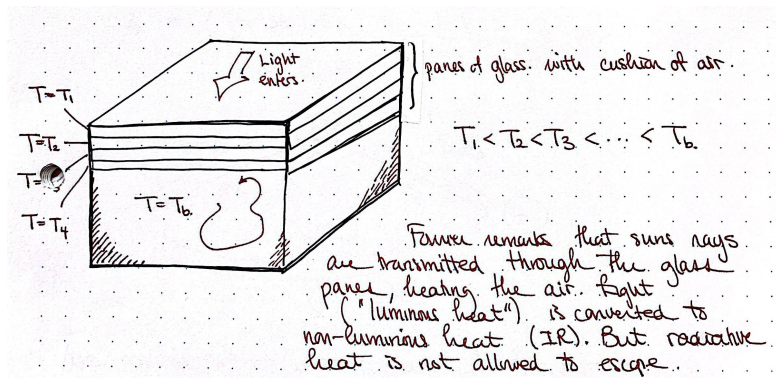 Light
enters.
panes of glass. with cushion of air.
T=T₁
T₁ < T₂ < T₃ < ... < T_b.
T=T₂
T=
T=T₄
T=T_b.
Fourier remarks that suns rays
are transmitted through the glass
panes, heating the air. Light
("luminous heat") is converted to
non-luminous heat (IR). But radiative
heat is not allowed to escape.